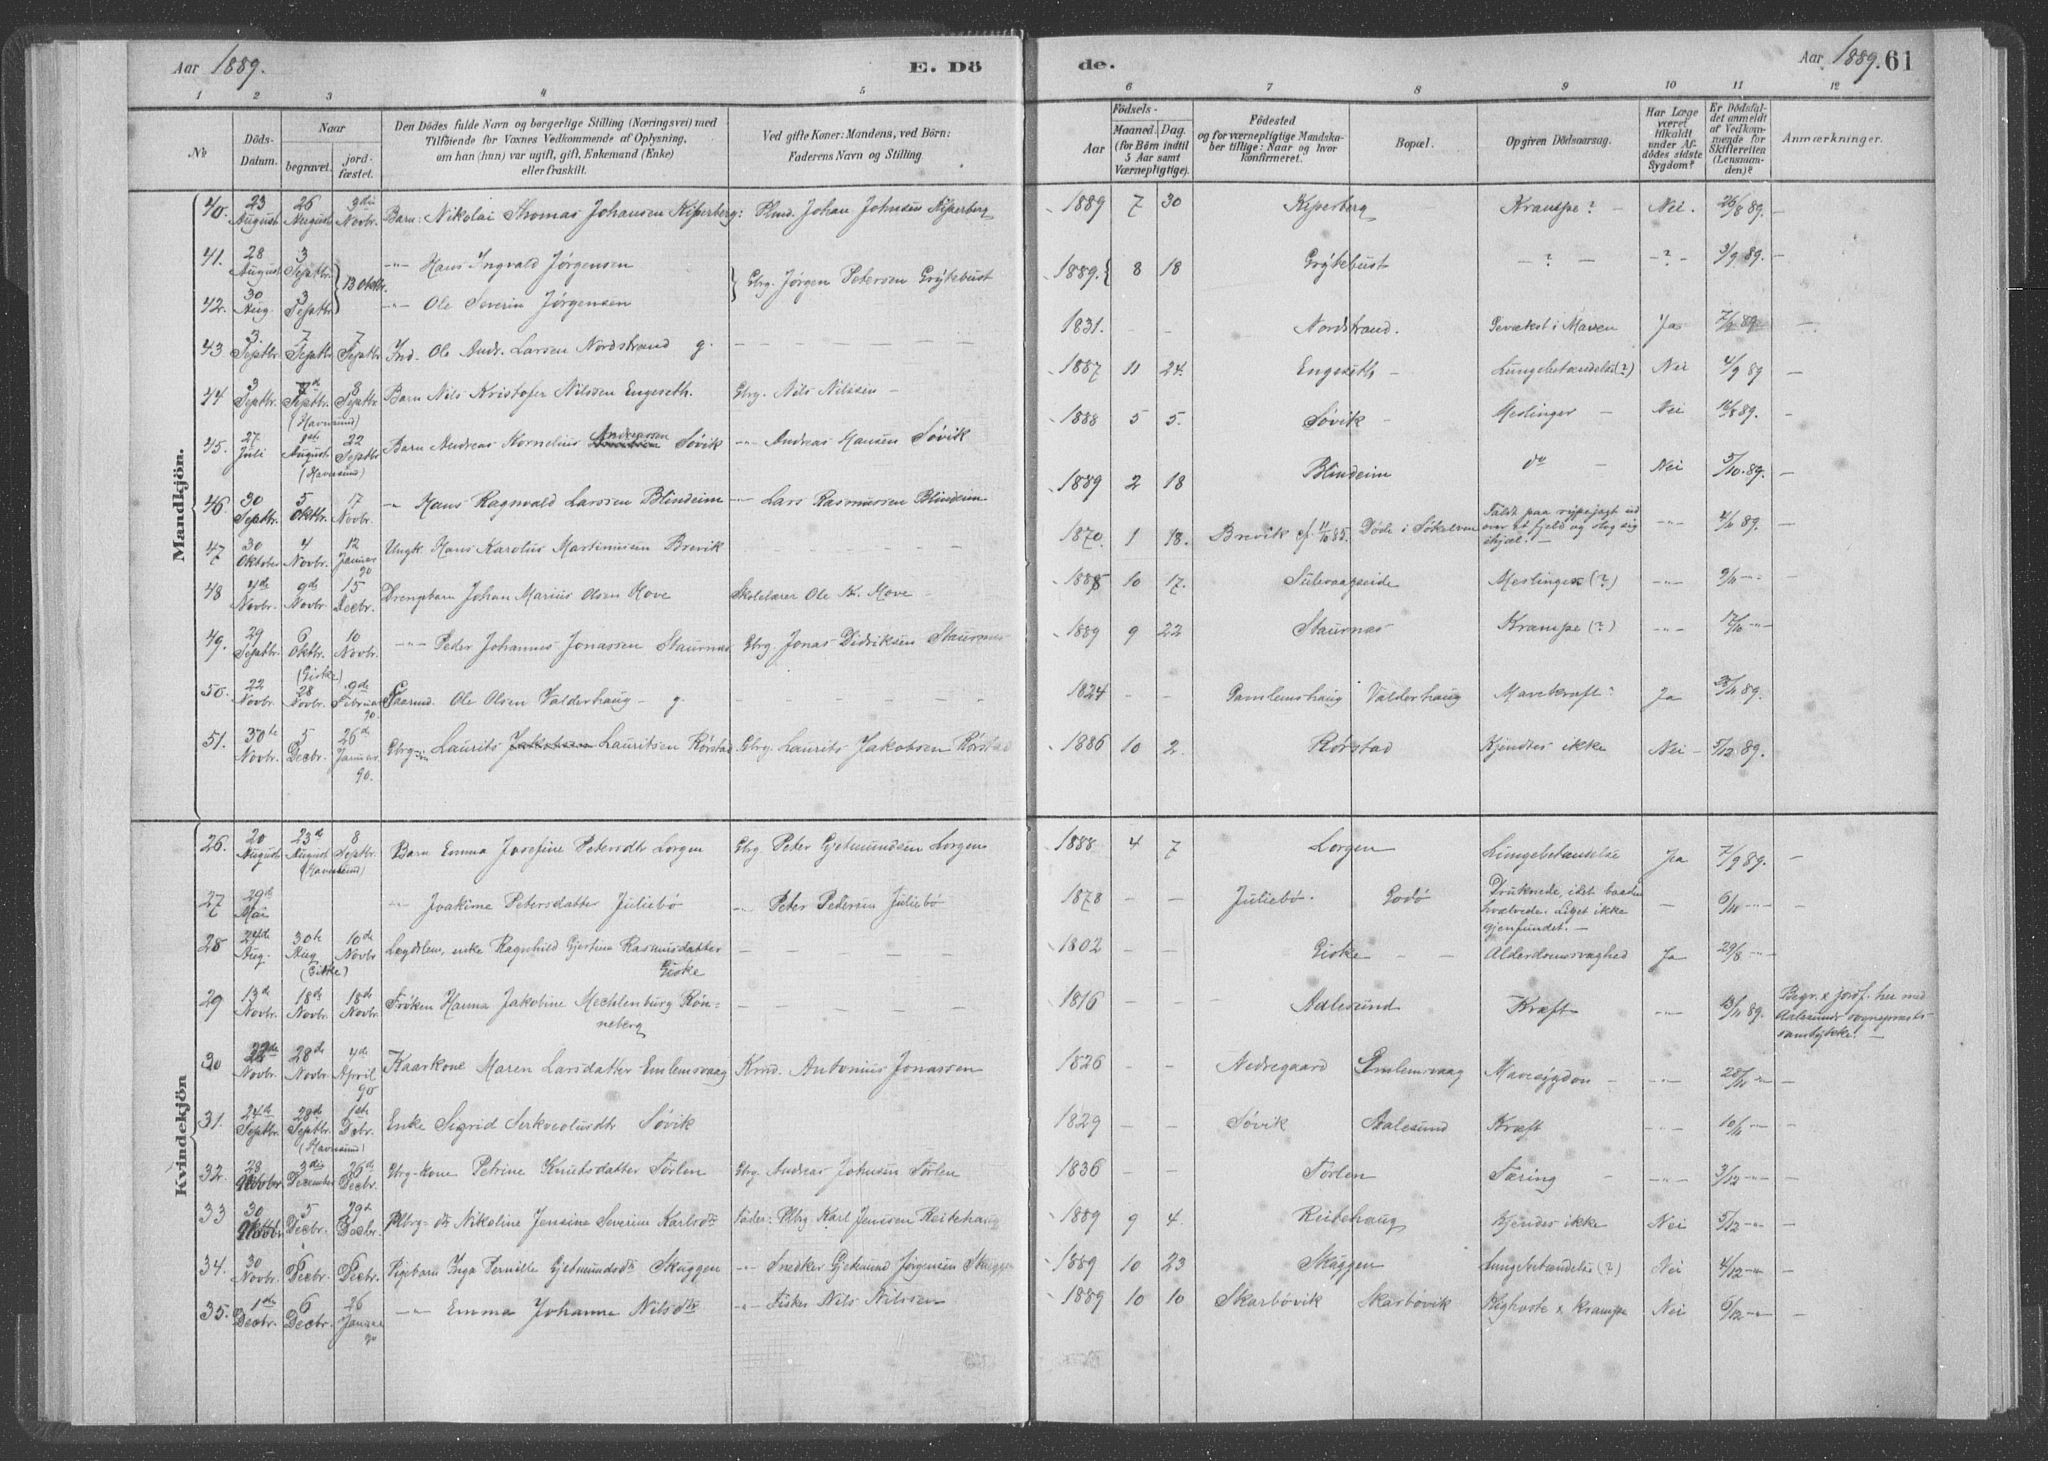 Aar 1889. E. Dö
1 2 3 4 5
No Döds-Datum. Naar begravet. jordfæstet. Den Dödes fulde Navn og borgerlige Stilling (Næringsvei) med Tilföiende for Voxnes Vedkommende af Oplysning, om han (hun) var ugift, gift, Enkemand (Enke) eller fraskilt. Ved gifte Koner: Mandens, ved Börn: Faderens Navn og Stilling.
Mandkjön.
40. 23 August 26 August 3die Novbr. Barn: Nikolai Thomas Johansen Kiperberg: Plmd. Johan Johnsen Kiperberg
41. 28 August 3 Septbr. 13 Oktbr. -"- Hans Ingvald Jørgensen Gbrg. Jørgen Petersen Grytebust
42. 30 Aug. 3 Septbr. -"- Ole Severin Jørgensen
43 3. Septbr. 7 Septbr. 7 Septbr. Ind. Ole Andr. Larsen Nordstrand g. — — — —
44 3 Septbr. 7d Septbr. (Havnsund) 8 Septbr. Barn Nils Kristofer Nilssen Engeseth. Gbrg. Nils Nilssen -
45. 27 Juli 1ste August (Havnsund) 22 Septbr. Barn Andreas Kornelius Andreassen Søvik -"- Andreas Hansen Søvik
46. 30 Septbr. 5 Oktbr. 17 Novbr. -"- Hans Ragnvald Larssen Blindeim -"- Lars Rasmussen Blindeim
47 30 Oktober 4 Novbr. 12 Januar 90 Ungk. Hans Karolus Martinusen Brevik
48 4de Novbr. 9de Novbr. 15 Decbr. Drengebarn Johan Marius Olsen Hove Skolelærer Ole K. Hove -
49. 29 Septbr. 6 Oktbr. (Giske) 10 Novbr. -"- Peder Johannes Jonassen Staurnæs Gbrg. Jonas Didriksen Staurnæs
50. 22 Novbr. 28 Novbr. 9de Februar 90 Kaarmd. Ole Olsen Valderhaug - g.
51. 30te Novbr. 5 Decbr. 26d Januar 90. Gbrg-sn Laurits Jakobsen Lauritsen Rørstad Gbrg. Laurits Jakobsen Rørstad
Kvindekjön
26. 20 August 23d August (Havnsund) 8 Septbr. Barn Emma Josefine Petersdtr Lorgen Gbrg Peter Gjetmundsen Lorgen
27 29d Mai -"- Joakime Petersdatter Juliebø -"- Peter Pedersen Juliebø
28 24de Aug. 30te Aug (Giske) 10de Novbr Lægdslem, enke Ragnhild Gjertine Rasmusdatter Giske
29 13d Novbr. 18de Novbr. 18de Novbr. Frøken Hanna Jakobine Mechlenburg Rønneberg
30 22de Novbr. 28de Novbr. 4de April 90 Kaarkone Maren Larsdatter Emlemsvaag Krmd. Antonius Jonassen
31. 24de Septbr. 28d Septbr. (Havnsund) 1ste Decbr. Enke Sigrid Serkveolusdtr Søvik
32. 28 Novbr 3die December 26d Decbr. Gbrg-kone Petrine Knutsdatter Tørlen Gbrg. Andreas Johnsen Tørlen
33 30 Oktbr 5 Decbr. 29d Decbr. Plbrg-dtr Nikoline Jensine Severine Karlsdtr Fader: Plbrg Karl Jenssen Reitehaug
34. 30 Novbr. 6 Decbr. 6 Decbr. Pigebarn Inga Pernille Gjetmundsdtr Skuggen -"- Snedker Gjetmund Jørgensen Skuggen
35. 1ste Decbr. 6 Decbr. 26 Januar 90 -"- Emma Johanna Nilsdtr -"- Fisker Nils Nilssen
de. Aar 1889. 61
6 7 8 9 10 11 12
Födsels- Aar Maaned. Dag. (for Börn indtil 5 Aar samt Værnepligtige). Födested og for værnepligtige Mandskaber tillige: Naar og hvor konfirmeret. Bopæl. Opgiven Dödsaarsag. Har Læge været tilkaldt under Afdödes sidste Sygdom? Er Dödsfaldet anmeldt af Vedkommende for Skifteretten (Lensmanden)? Anmærkninger.
1889 7 30 Kiperberg Krampe? - Nei. 26/8 89. —
1889. 8 18 Grytebust — ? — -?- 3/9 89. —
1831. - - Nordstrand. Gevækst i Maven Ja 7/9 89 —
1887 11 24. Engeseth Lungebetændelse(?) Nei 4/9 89 —
1888 5 5. Søvik - Meslinger - Nei 12/8 89. —
1889 2 18 Blindeim do - Nei 5/10. 89. —
1870. 1 18. Brevik cf. 11/10 85. Døde i Søkelven Faldt paa rypejagt ud over et fjeld og slog sig ihjel. - -"- 4/11 89. —
1885 10 17. Sulevaagseide Meslinger (?) -"- 9/11 -"- —
1889 9 22 Staurnæs Krampe (?) -"- 17/10 -"- —
1824 — — Gamlemshaug Valderhaug Mavekræft? Ja 28/11 89. —
1886 10 2. Rørstad Kjendtes ikke Nei - 5/12 89. —
1888 4 7 Lorgen Lungebetændelse Ja 7/9 89. —
1878 — — Juliebø. Godø Druknede, idet baaden hvælvede. Liget ikke gjenfundet. — - 6/11 -"- —
1802 — — Giske - - Alderdomsvaghed Ja 29/8 -"- —
1816 — — Aalesund Kræft -"- 13/11 89. Begr. & jordf. her med Aalesunds sogneprests samtykke. —
1826 — — Nedregaard Emlemsvaag Mavesygdom - -"- 28/11 -"- —
1829 — — Søvik Aalesund Kræft -"- 10/11 -"- —
1836 — — Tørlen Tæring - -"- 3/12 -"- —
1889 9 4. Reitehaug Kjendes ikke Nei 5/12 -"- —
1889 10 23 Skuggen Lungebetændelse (?) Nei 4/12 -"- —
1889 10 10 Skarbøvik Skarbøvik Kighoste & Krampe Nei 6/12 -"- —